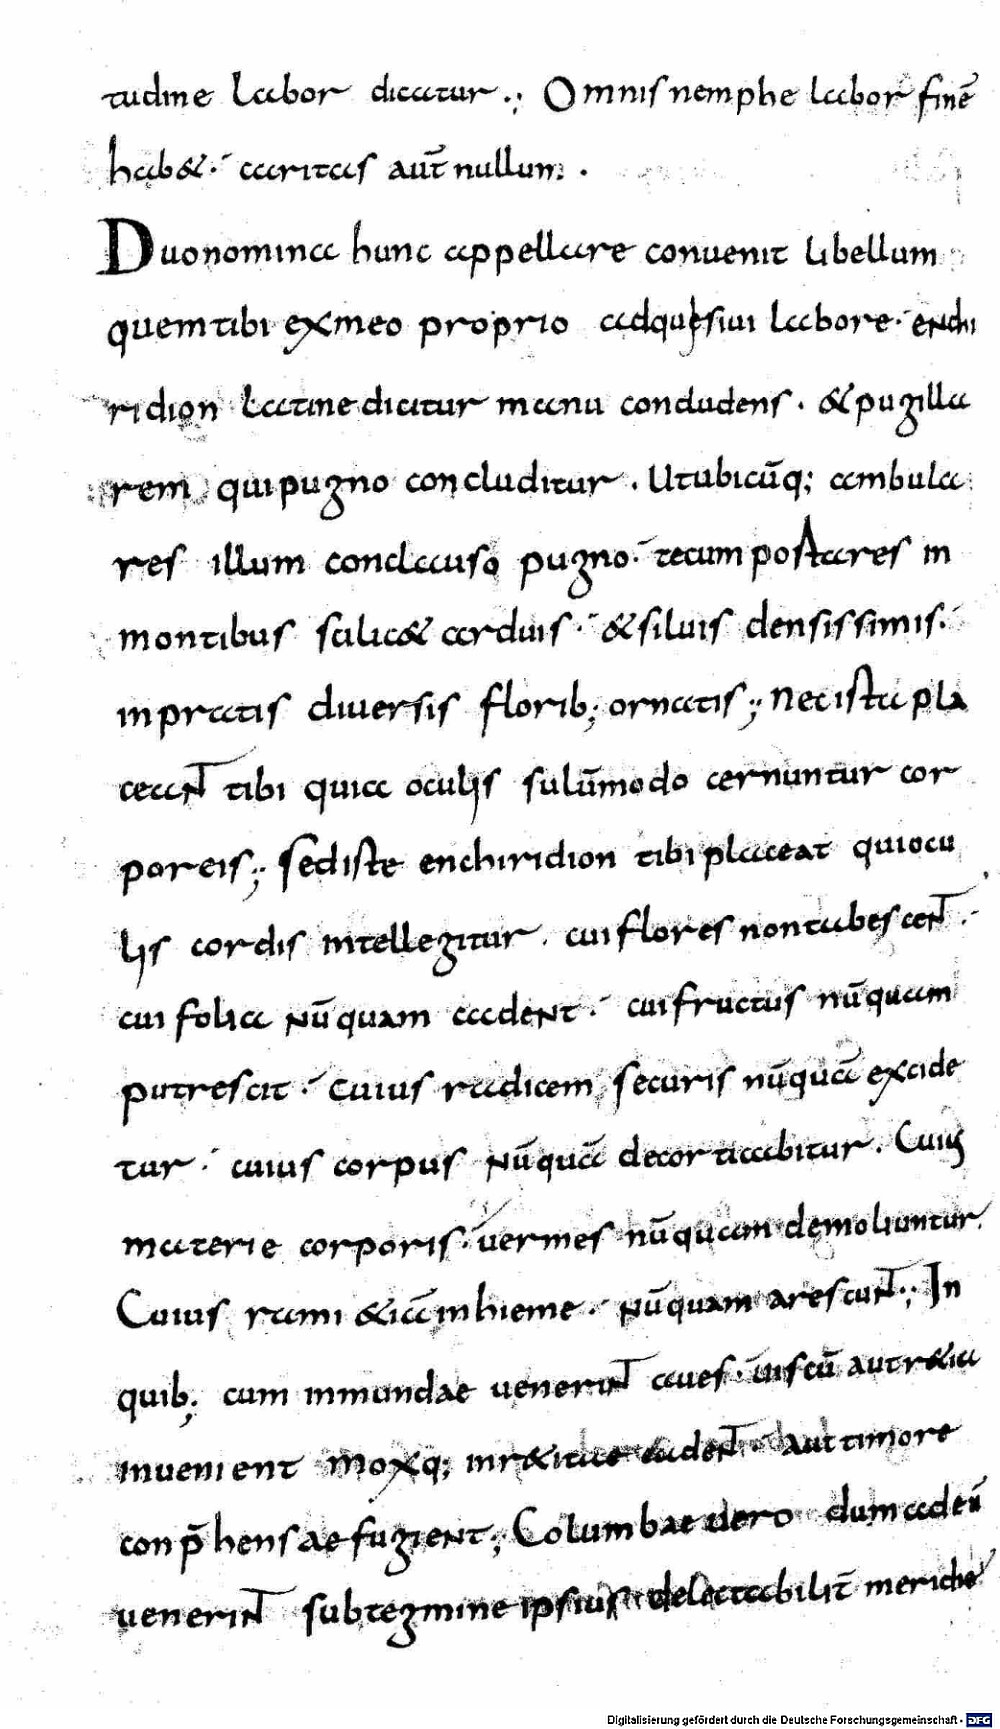 tudine labor dicatur·; Omnis nemphe labor finē
hab&· caritas aut̄ nullum·
Duo nomina hunc appellare convenit libellum
quem tibi ex meo proprio adquęsiui labore· enchi
ridion Latine dicitur manu condudens· & pugilla
rem qui pugno concluditur· Ut ubicūq; ambula
res illum conclauso pugno· tecum postares in
montibus scilic& arduis· & siluis densissimis·
in pratis diuersis florib; ornatis·; Nec ista pla
ceaNT tibi quia oculis sulūmodo cernuntur cor
poreis·; Sed iste enchiridion tibi placeat qui ocu
lis cordis intellegitur· cui flores non tabesceNT·
cui folia nūquam cadent· cui fructus nūquam
putrescit· Cuius radicem securis nūquā excide
tur· cuius corpus nūquā decorticabitur· Cuius
materie corporis· vermes nūquam demoliuntur·
Cuius rami &iā in hieme· nūquam arescuNT·; In
quib; cum inmundae veneriNT aues· uiscū aut r&ia
invenient moxq; in r&itate cadeNT· aut timore
conp̄hensae fugient·; Columbae vero dum ad eū
veneriNT sub tegmine ipsius delectabilit̄ meridie
Digitalisierung gefördert durch die Deutsche Forschungsgemeinschaft - DFG